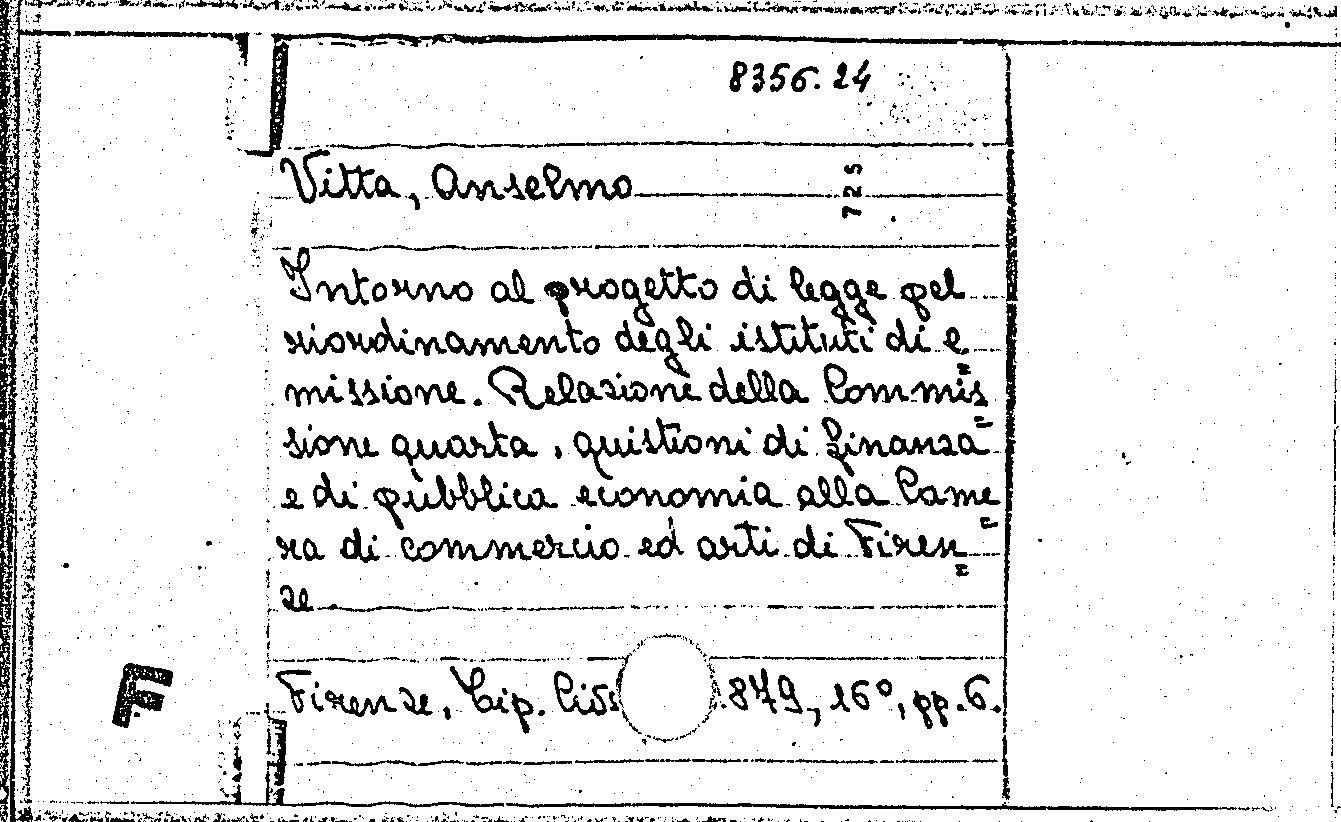 8356.24
Vitta, Anselmo
725
Intorno al progetto di legge pel
riordinamento degli istituti di e=
missione. Relazione della Commis=
sione quarta, quistioni di finanza
e di pubblica economia alla Came=
ra di commercio ed arti di Firen=
ze.
Firenze, Tip. 879, 16°, pp. 6.
F